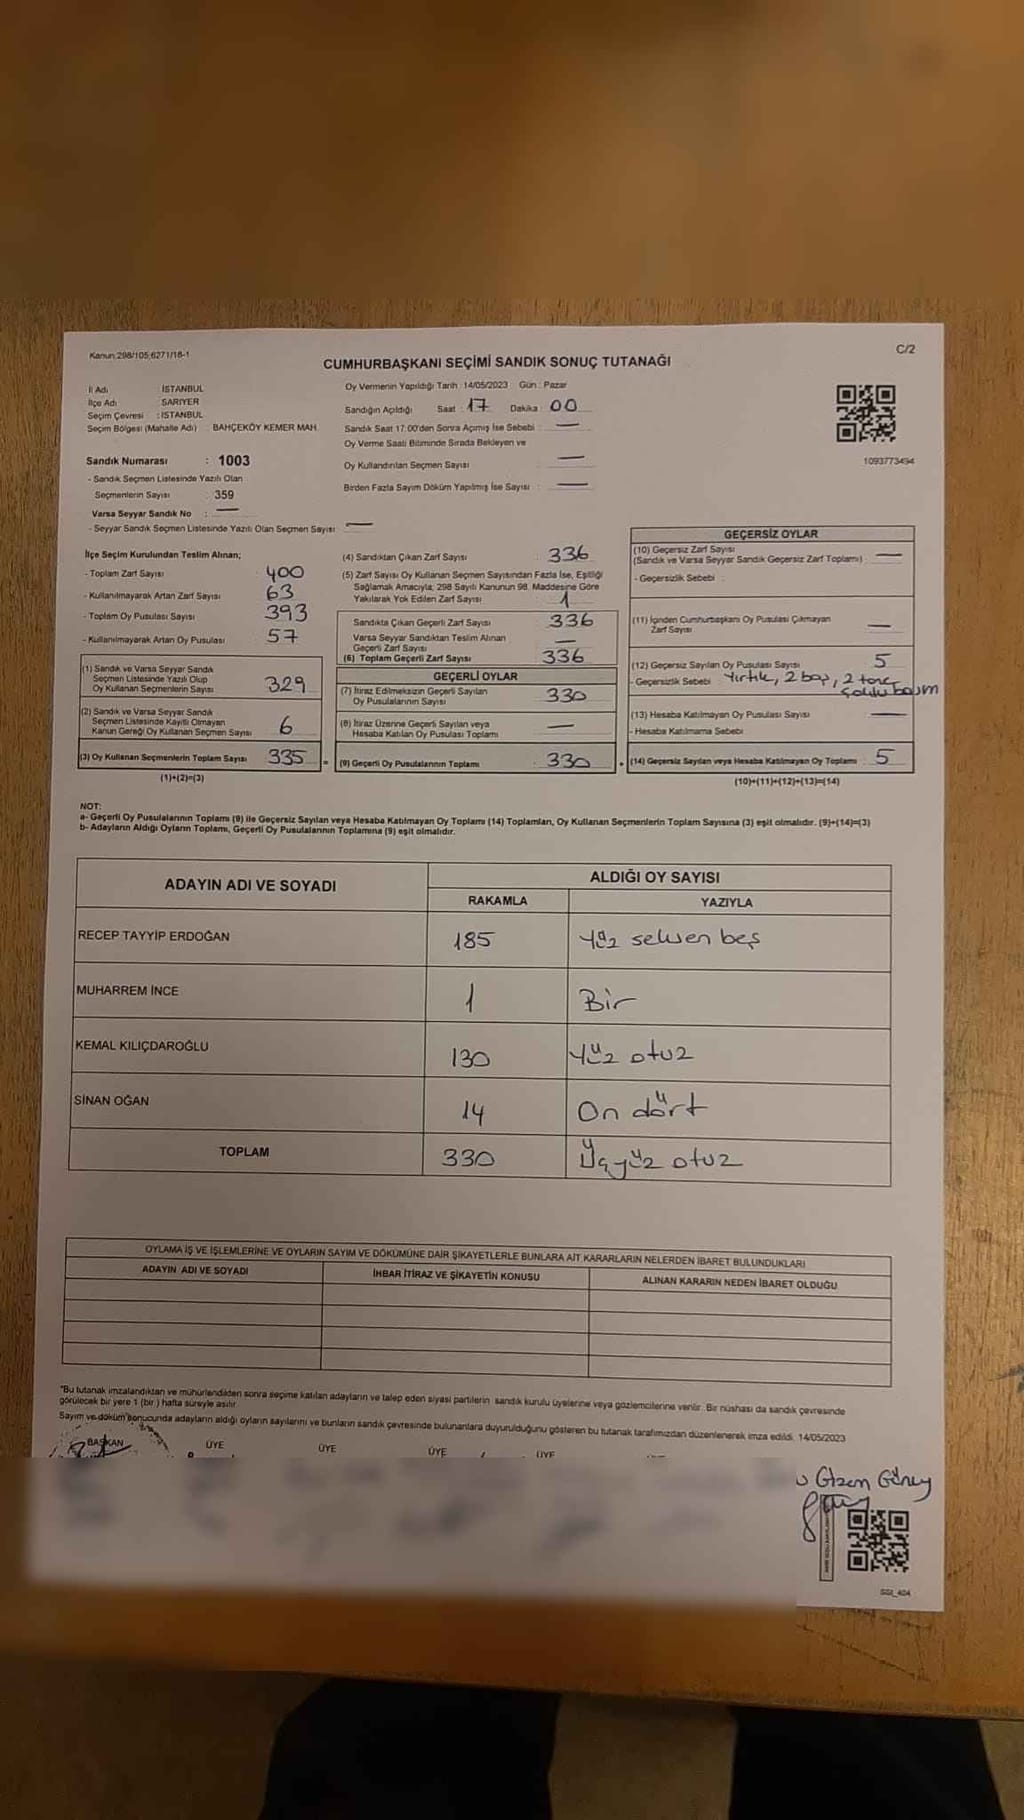 Kanun:298/105;6271/18-1
C/2
CUMHURBAŞKANI SEÇİMİ SANDIK SONUÇ TUTANAĞI
İl Adı : İSTANBUL
İlçe Adı : SARIYER
Seçim Çevresi : İSTANBUL
Seçim Bölgesi (Mahalle Adı) BAHÇEKÖY KEMER MAH.
Sandık Numarası : 1003
- Sandık Seçmen Listesinde Yazılı Olan
Seçmenlerin Sayısı : 359
Varsa Seyyar Sandık No : —
- Seyyar Sandık Seçmen Listesinde Yazılı Olan Seçmen Sayısı : —
Oy Vermenin Yapıldığı Tarih : 14/05/2023 Gün : Pazar
Sandığın Açıldığı Saat : 17 Dakika : 00
Sandık Saat 17:00'den Sonra Açılmış İse Sebebi : —
Oy Verme Saati Bitiminde Sırada Bekleyen ve
Oy Kullandırılan Seçmen Sayısı : —
Birden Fazla Sayım Döküm Yapılmış İse Sayısı : —
1093773494
İlçe Seçim Kurulundan Teslim Alınan;
- Toplam Zarf Sayısı : 400
- Kullanılmayarak Artan Zarf Sayısı : 63
- Toplam Oy Pusulası Sayısı : 393
- Kullanılmayarak Artan Oy Pusulası : 57
(1) Sandık ve Varsa Seyyar Sandık
Seçmen Listesinde Yazılı Olup
Oy Kullanan Seçmenlerin Sayısı : 329
(2) Sandık ve Varsa Seyyar Sandık
Seçmen Listesinde Kayıtlı Olmayan
Kanun Gereği Oy Kullanan Seçmen Sayısı : 6
(3) Oy Kullanan Seçmenlerin Toplam Sayısı : 335
(1)+(2)=(3)
(4) Sandıktan Çıkan Zarf Sayısı : 336
(5) Zarf Sayısı Oy Kullanan Seçmen Sayısından Fazla İse, Eşitliği
Sağlamak Amacıyla; 298 Sayılı Kanunun 98. Maddesine Göre
Yakılarak Yok Edilen Zarf Sayısı : 1
Sandıkta Çıkan Geçerli Zarf Sayısı : 336
Varsa Seyyar Sandıktan Teslim Alınan
Geçerli Zarf Sayısı : —
(6) Toplam Geçerli Zarf Sayısı : 336
GEÇERLİ OYLAR
(7) İtiraz Edilmeksizin Geçerli Sayılan
Oy Pusulalarının Sayısı : 330
(8) İtiraz Üzerine Geçerli Sayılan veya
Hesaba Katılan Oy Pusulası Toplamı : —
(9) Geçerli Oy Pusulalarının Toplamı : 330
GEÇERSİZ OYLAR
(10) Geçersiz Zarf Sayısı
(Sandık ve Varsa Seyyar Sandık Geçersiz Zarf Toplamı) : —
- Geçersizlik Sebebi :
(11) İçinden Cumhurbaşkanı Oy Pusulası Çıkmayan
Zarf Sayısı : —
(12) Geçersiz Sayılan Oy Pusulası Sayısı : 5
- Geçersizlik Sebebi : Yırtık, 2 boş, 2 tane
(13) Hesaba Katılmayan Oy Pusulası Sayısı : —
- Hesaba Katılmama Sebebi
(14) Geçersiz Sayılan veya Hesaba Katılmayan Oy Toplamı : 5
(10)+(11)+(12)+(13)=(14)
NOT:
a- Geçerli Oy Pusulalarının Toplamı (9) ile Geçersiz Sayılan veya Hesaba Katılmayan Oy Toplamı (14) Toplamları, Oy Kullanan Seçmenlerin Toplam Sayısına (3) eşit olmalıdır. (9)+(14)=(3)
b- Adayların Aldığı Oyların Toplamı, Geçerli Oy Pusulalarının Toplamına (9) eşit olmalıdır.
ADAYIN ADI VE SOYADI
ALDIĞI OY SAYISI
RAKAMLA YAZIYLA
RECEP TAYYİP ERDOĞAN 185 Yüz seksen beş
MUHARREM İNCE 1 Bir
KEMAL KILIÇDAROĞLU 130 Yüz otuz
SİNAN OĞAN 14 On dört
TOPLAM 330 Üçyüz otuz
OYLAMA İŞ VE İŞLEMLERİNE VE OYLARIN SAYIM VE DÖKÜMÜNE DAİR ŞİKAYETLERLE BUNLARA AİT KARARLARIN NELERDEN İBARET BULUNDUKLARI
ADAYIN ADI VE SOYADI İHBAR İTİRAZ VE ŞİKAYETİN KONUSU ALINAN KARARIN NEDEN İBARET OLDUĞU
*Bu tutanak imzalandıktan ve mühürlendikten sonra seçime katılan adayların ve talep eden siyasi partilerin sandık kurulu üyelerine veya gözlemcilerine verilir. Bir nüshası da sandık çevresinde
görülecek bir yere 1 (bir) hafta süreyle asılır.
Sayım ve döküm sonucunda adayların aldığı oyların sayılarını ve bunların sandık çevresinde bulunanlara duyurulduğunu gösteren bu tutanak tarafımızdan düzenlenerek imza edildi. 14/05/2023
BAŞKAN ÜYE ÜYE ÜYE ÜYE
Gizem Güney
SSI_404